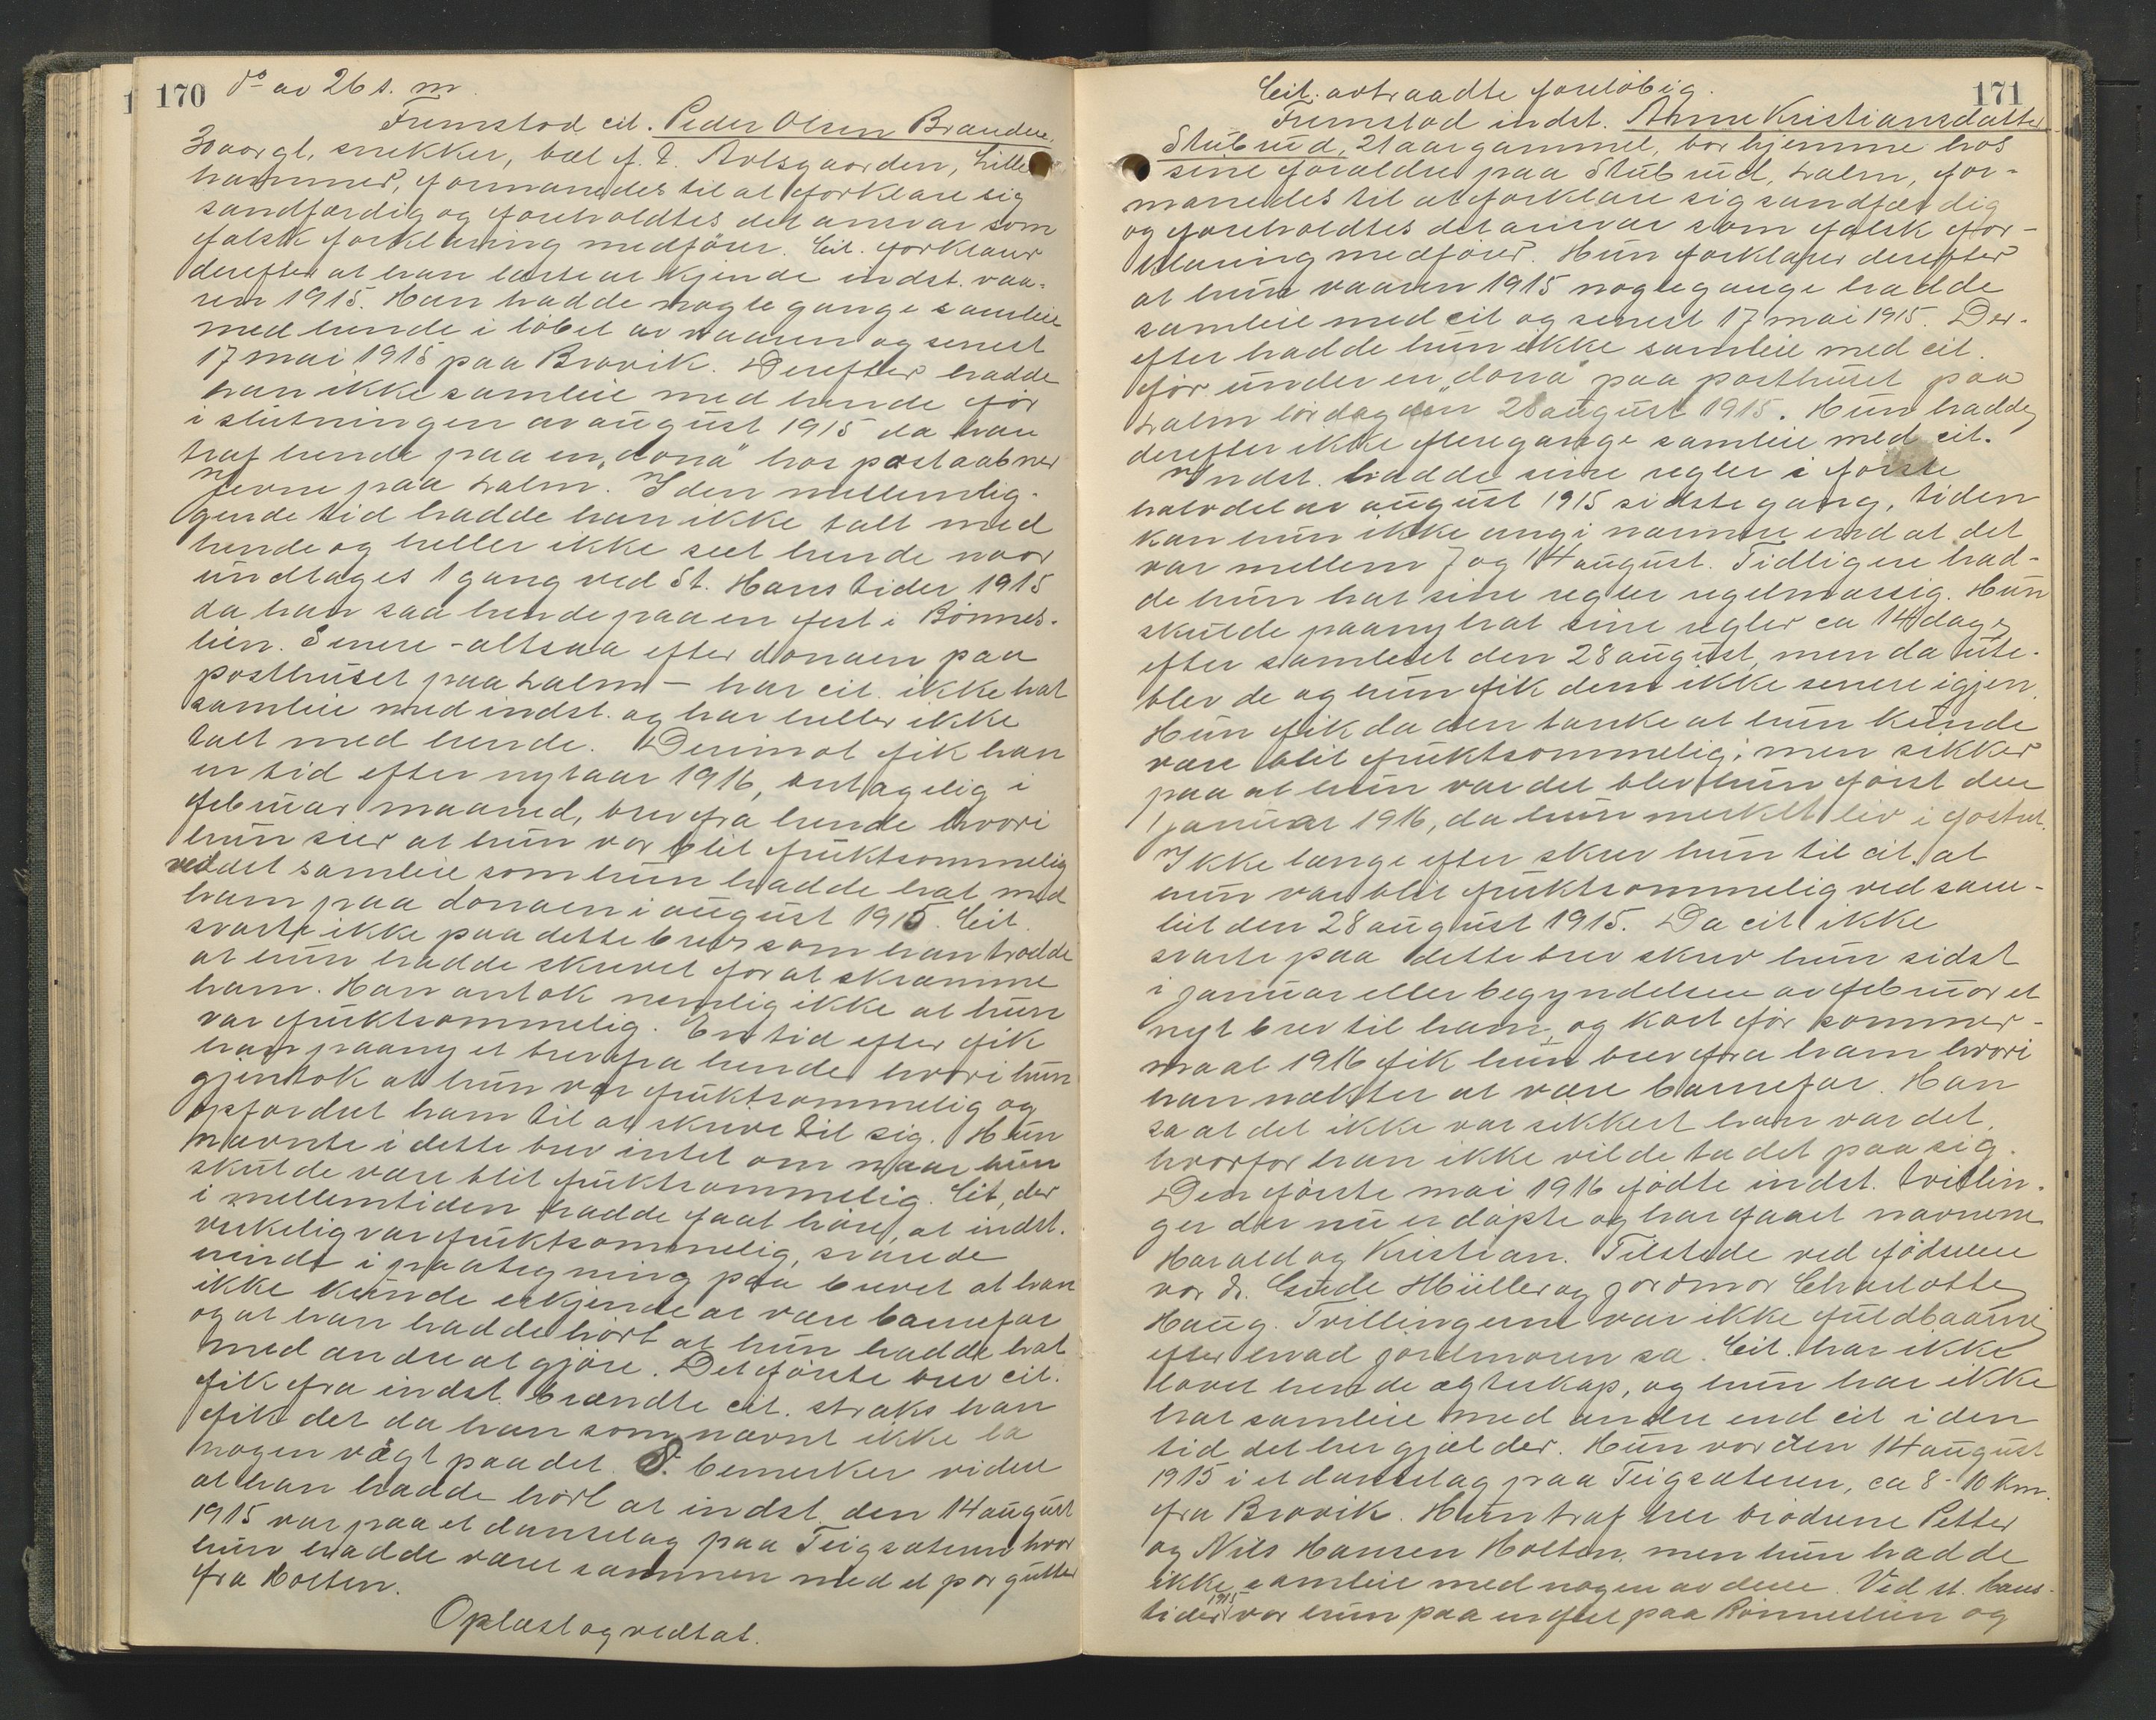 170 do av 26 s. m.
Fremstod cit. Peder Olsen Brandvu
30 aar gl. snekker, bæl f. t. Avlsgaarden, Lille
hammer, formanedes til at forklare sig
sandfærdig og foreholdtes det ansvar som
falsk forklaring medfører. Cit. forklarer
derefter at han lærte at kjende indst. vaa-
ren 1915. Han hadde nogle gange samleie
med hende i løbet av vaaren og senest
17 mai 1915 paa Brovik. Derefter hadde
han ikke samleie med hende før
i slutningen av august 1915 da han
traf hende paa en "dona" hos postaabner
Jerne paa Lalm. I den mellemlig-
gende tid hadde han ikke talt med
hende og heller ikke seet hende naar
undtages 1 gang ved St. Hans tider 1915
da han saa hende paa en fest i Rønnes-
lien. Senere - altsaa efter donaen paa
posthuset paa Lalm - har cit. ikke hat
samleie med indst. og har heller ikke
talt med hende. Derimot fik han
en tid efter nytaar 1916, antagelig i
februar maaned, brev fra hende hvori
hun sier at hun var blit fruktsommelig
ved det samleie som hun hadde hat med
ham paa donaen i august 1915. Cit.
svarte ikke paa dette brev som han trodde
at hun hadde skrevet for at skræmme
ham. Han antok nemlig ikke at hun
var fruktsommelig. En tid efter fik
han paany et brev fra hende hvori hun
gjentok at hun var fruktsommelig og
opfordret ham til at skrive til sig. Hun
nævnte i dette brev intet om naar hun
skulde være blit fruktsommelig. Cit, der
i mellemtiden hadde faat høre, at indst.
virkelig var fruktsommelig, svarede
hende i paategning paa brevet at han
ikke kunde erkjende at være barnefar
og at han hadde hørt at hun hadde hat
med andre at gjøre. Det første brev cit.
fik fra indst. brændte cit. straks han
fik det da han som nævnt ikke la
nogen vægt paa det. D. bemerker videre
at han hadde hørt at indst. den 14 august
1915 var paa et danselag paa Teigsæteren hvor
hun hadde været sammen med et par gutter
fra Holten.
Oplæst og vedtat.
171
Cit. avtraadte foreløbig.
Fremstod indst. Anne Kristiansdatter
Stubrud, 21 aar gammel, bor hjemme hos
sine forældre paa Stubrud, Lalm, for-
manedes til at forklare sig sandfærdig
og foreholdtes det ansvar som falsk for-
klaring medfører. Hun forklarer derefter
at hun vaaren 1915 nogle gange hadde
samleie med cit og senest 17 mai 1915. Der-
efter hadde hun ikke samleie med cit.
før under en "dona" paa posthuset paa
Lalm lørdag den 28 august 1915. Hun hadde
derefter ikke flere gange samleie med cit.
Indst. hadde sine regler i første
halvdel av august 1915 sidste gang, tiden
kan hun ikke angi nærmere end at det
var mellem 7 og 14 august. Tidligere had-
de hun hat sine regler regelmæssig. Hun
skulde paany hat sine regler ca 14 dage
efter samleiet den 28 august, men da ute-
blev de og hun fik dem ikke senere igjen.
Hun fik da den tanke at hun kunde
være blit fruktsommelig; men sikker
paa at hun var det blev hun først den
1 januar 1916, da hun merket liv i fostret.
Ikke længe efter skrev hun til cit. at
hun var blit fruktsommelig ved sam-
leiet den 28 august 1915. Da cit ikke
svarte paa dette brev skrev hun sidst
i januar eller begyndelsen av februar et
nyt brev til ham, og kort før sommer-
maal 1916 fik hun brev fra ham hvori
han nekter at være barnefar. Han
sa at det ikke var sikkert han var det,
hvorfor han ikke vilde ta det paa sig.
Den første mai 1916 fødte indst. tvillin-
ger der nu er døpte og har faaet navnene
Harald og Kristian. Tilstede ved fødselen
var dr. Gude Müller og jordmor Charlotte
Haug. Tvillingerne var ikke fuldbaarne
efter hvad jordmoren sa. Cit. har ikke
lovet hende ægteskap, og hun har ikke
hat samleie med andre end cit i den
tid det her gjælder. Hun var den 14 august
1915 i et danselag paa Teigsæteren, ca 8-10 km.
fra Brovik. Hun traf her brødrene Petter
og Nils Hansen Holten, men hun hadde
ikke samleie med nogen av disse. Ved st. hans-
tider 1915 var hun paa en fest paa Rønneslien og